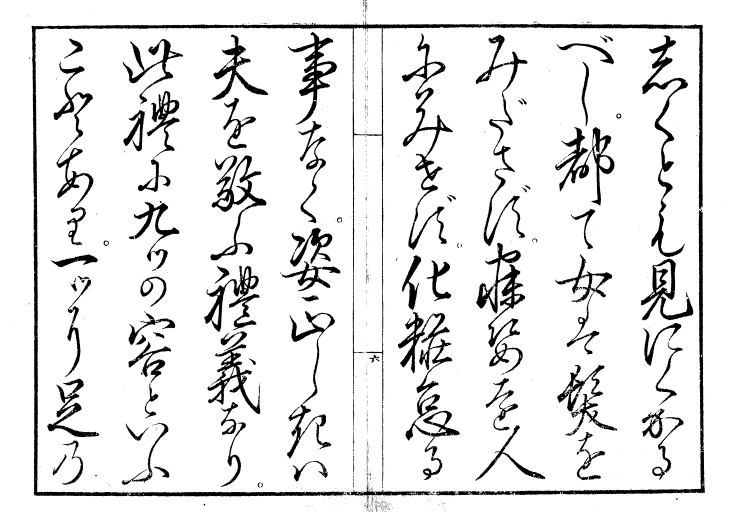 志くとも見にくかる
べし。都て女ハ髪を
みださず。寐姿を人
にみせず。化粧怠る
六
事なく。姿正しきハ
夫を敬ふ禮義なり。
此禮に九ツの容といふ
ことあり。一ツに足乃